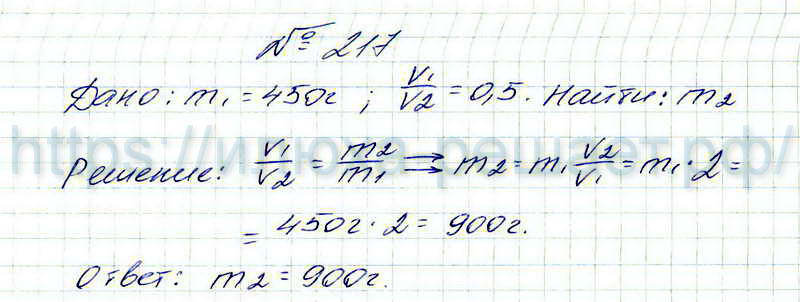 № 217
Дано: m₁ = 450г ; v₁/v₂ = 0,5. Найти: m₂
https://илюха-решает.рф/
Решение: v₁/v₂ = m₂/m₁ ⇒ m₂ = m₁ v₂/v₁ = m₁ · 2 =
= 450г · 2 = 900г.
Ответ: m₂ = 900г.